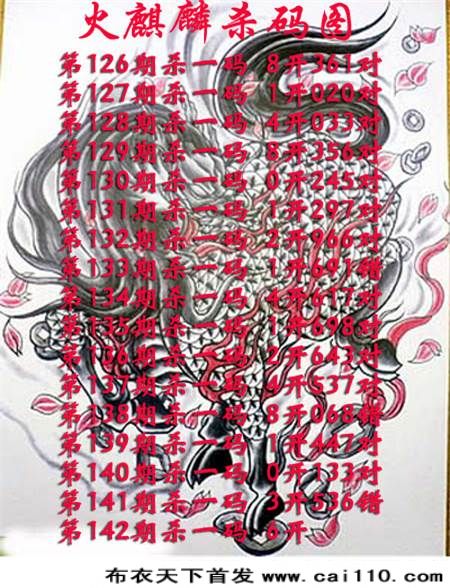 火麒麟杀码图
第126期杀一码 8开361对
第127期杀一码 1开020对
第128期杀一码 4开033对
第129期杀一码 8开356对
第130期杀一码 0开245对
第131期杀一码 1开297对
第132期杀一码 2开966对
第133期杀一码 1开691错
第134期杀一码 4开617对
第135期杀一码 1开698对
第136期杀一码 2开643对
第137期杀一码 4开537对
第138期杀一码 8开068错
第139期杀一码 1开447对
第140期杀一码 0开133对
第141期杀一码 3开536错
第142期杀一码 6开
布衣天下首发 www.cai110.com